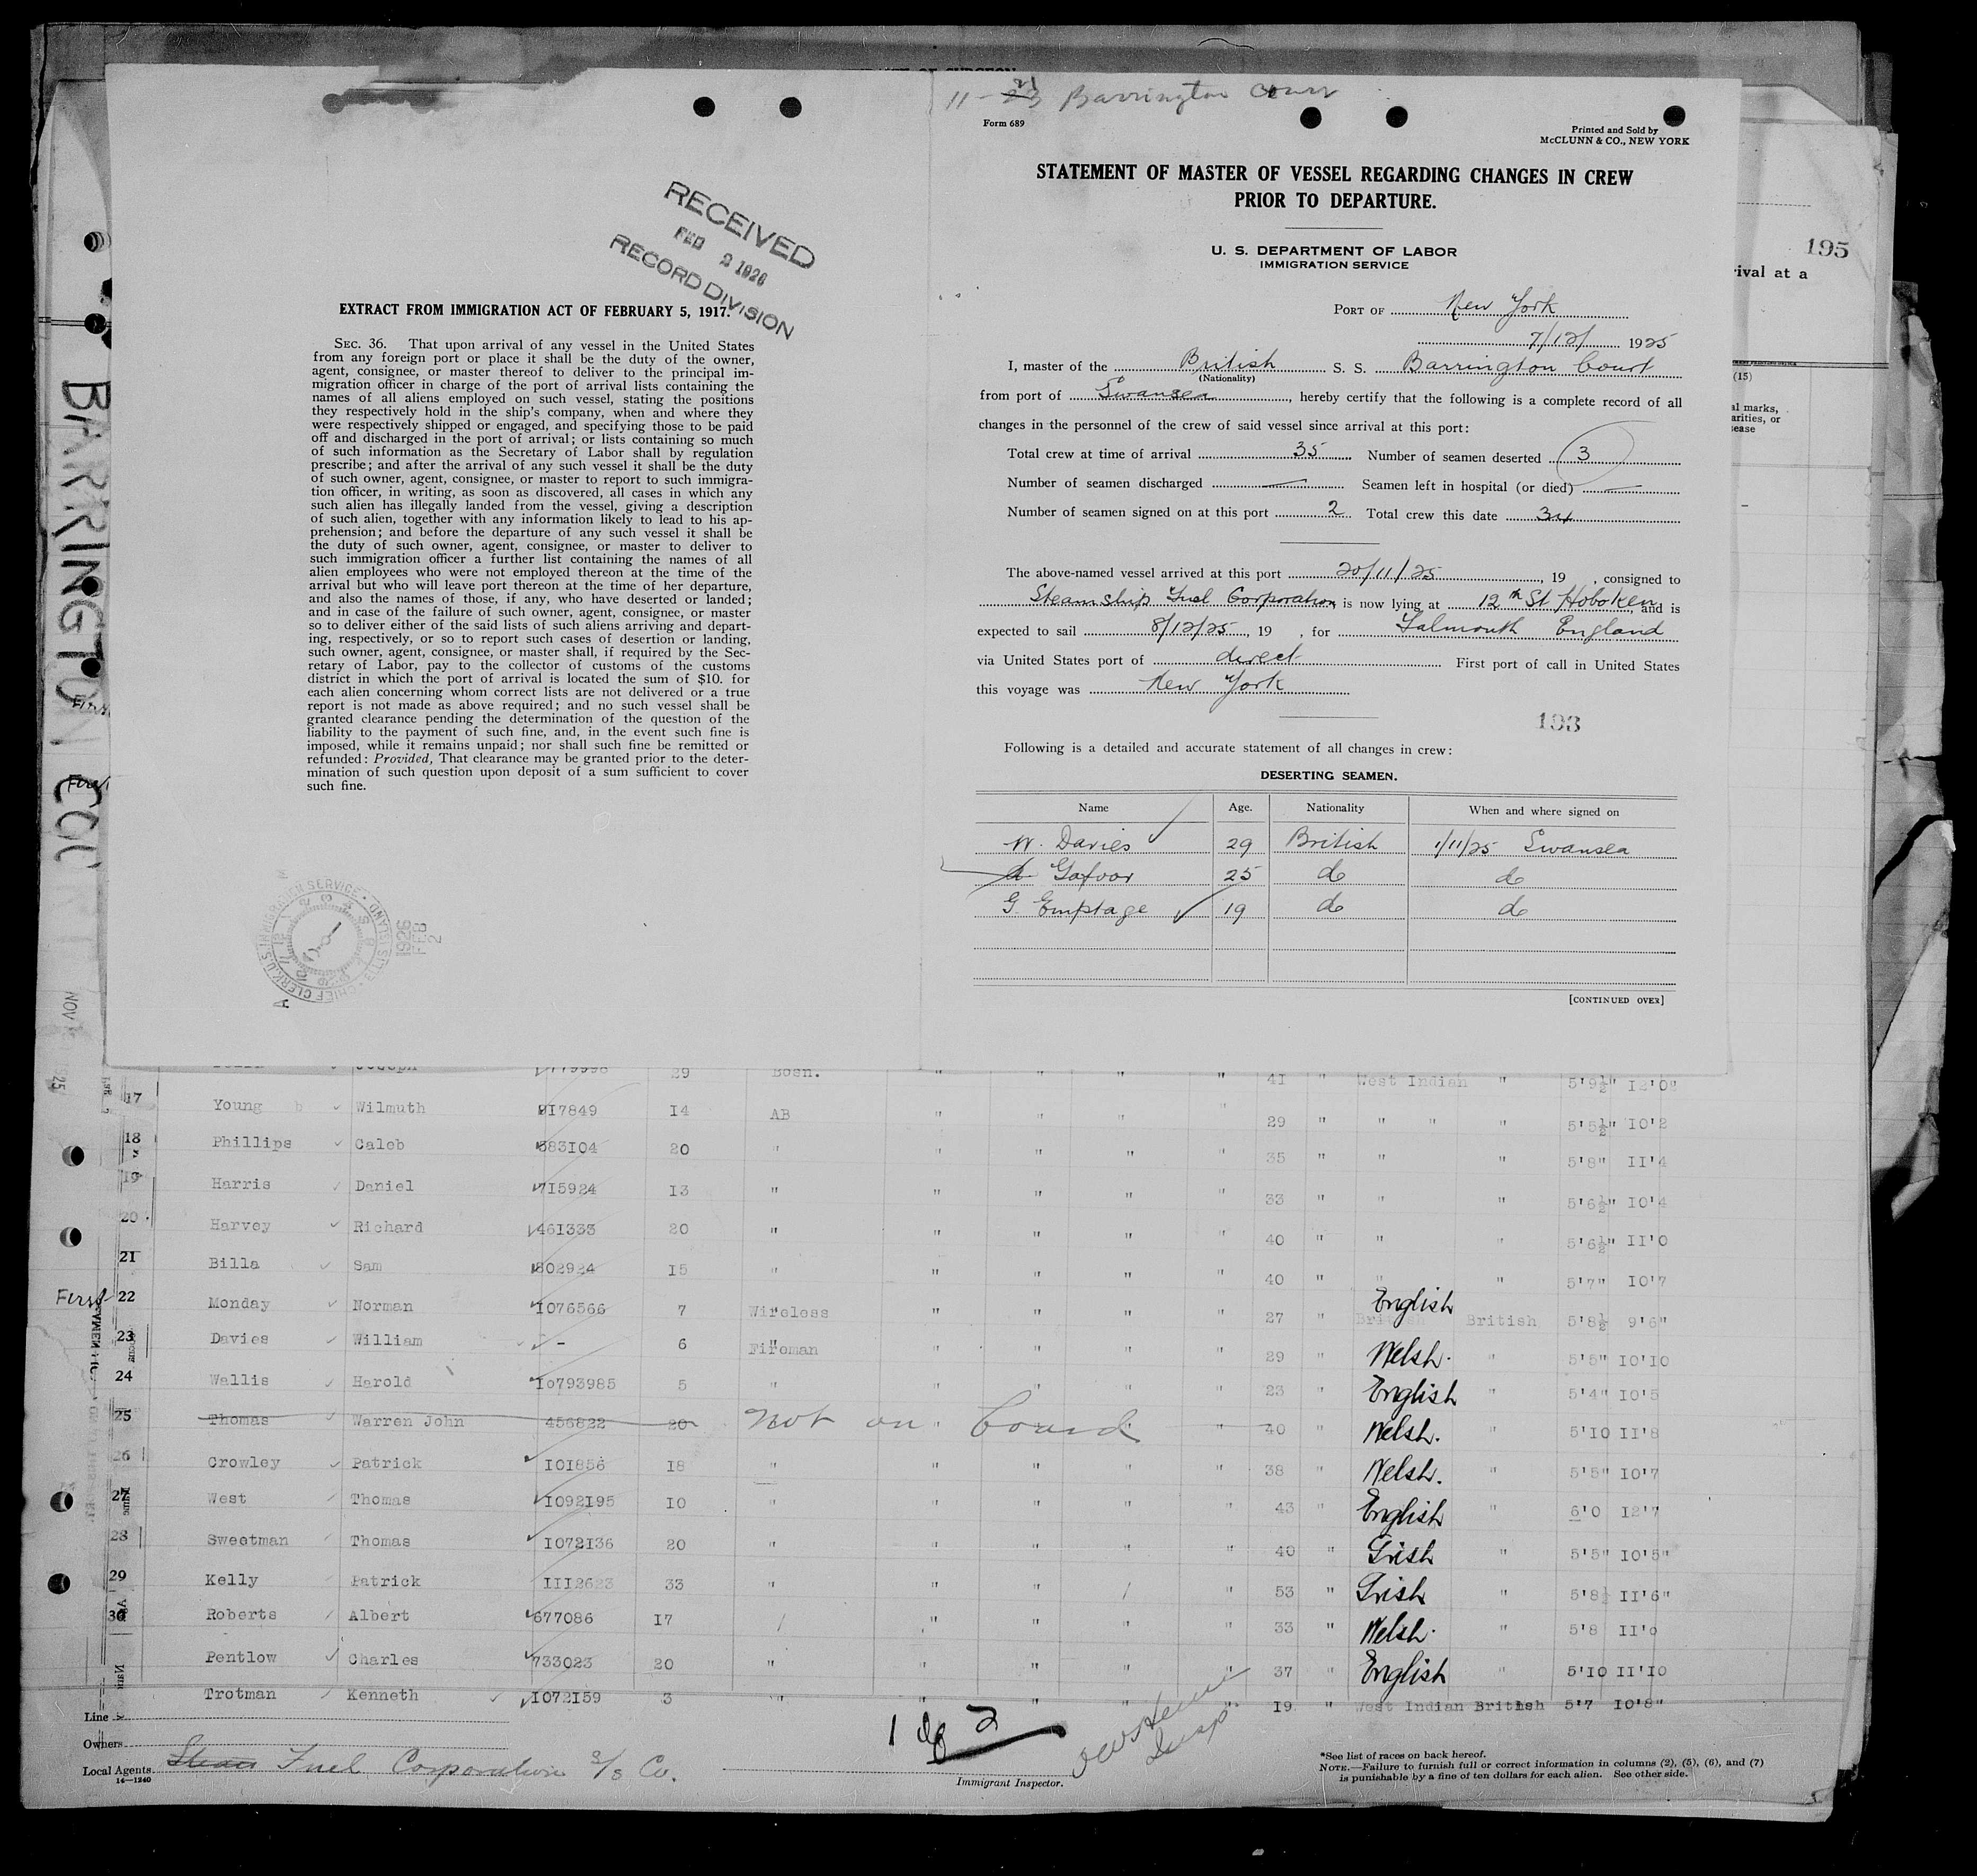 RECEIVED
FEB 2 1926
RECORD DIVISION
EXTRACT FROM IMMIGRATION ACT OF FEBRUARY 5, 1917.
SEC. 36. That upon arrival of any vessel in the United States
from any foreign port or place it shall be the duty of the owner,
agent, consignee, or master thereof to deliver to the principal im-
migration officer in charge of the port of arrival lists containing the
names of all aliens employed on such vessel, stating the positions
they respectively hold in the ship's company, when and where they
were respectively shipped or engaged, and specifying those to be paid
off and discharged in the port of arrival; or lists containing so much
of such information as the Secretary of Labor shall by regulation
prescribe; and after the arrival of any such vessel it shall be the duty
of such owner, agent, consignee, or master to report to such immigra-
tion officer, in writing, as soon as discovered, all cases in which any
such alien has illegally landed from the vessel, giving a description
of such alien, together with any information likely to lead to his ap-
prehension; and before the departure of any such vessel it shall be
the duty of such owner, agent, consignee, or master to deliver to
such immigration officer a further list containing the names of all
alien employees who were not employed thereon at the time of the
arrival but who will leave port thereon at the time of her departure,
and also the names of those, if any, who have deserted or landed;
and in case of the failure of such owner, agent, consignee, or master
so to deliver either of the said lists of such aliens arriving and depart-
ing, respectively, or so to report such cases of desertion or landing,
such owner, agent, consignee, or master shall, if required by the Sec-
retary of Labor, pay to the collector of customs of the customs
district in which the port of arrival is located the sum of $10. for
each alien concerning whom correct lists are not delivered or a true
report is not made as above required; and no such vessel shall be
granted clearance pending the determination of the question of the
liability to the payment of such fine, and, in the event such fine is
imposed, while it remains unpaid; nor shall such fine be remitted or
refunded: Provided, That clearance may be granted prior to the deter-
mination of such question upon deposit of a sum sufficient to cover
such fine.
CHIEF CLERK, U.S. IMMIGRATION SERVICE · ELLIS ISLAND
1926 FEB 2
11-21 Barrington Court
Form 689
Printed and Sold by
McCLUNN & CO., NEW YORK
STATEMENT OF MASTER OF VESSEL REGARDING CHANGES IN CREW
PRIOR TO DEPARTURE.
U. S. DEPARTMENT OF LABOR
IMMIGRATION SERVICE
PORT OF New York
7/12/ 1925
I, master of the British S. S. Barrington Court
(Nationality)
from port of Swansea, hereby certify that the following is a complete record of all
changes in the personnel of the crew of said vessel since arrival at this port:
Total crew at time of arrival 35 Number of seamen deserted 3
Number of seamen discharged — Seamen left in hospital (or died) —
Number of seamen signed on at this port 2 Total crew this date 34
The above-named vessel arrived at this port 20/11/25, 19 , consigned to
Steamship Fuel Corporation is now lying at 12th St Hoboken, and is
expected to sail 8/12/25, 19 , for Falmouth England
via United States port of direct First port of call in United States
this voyage was New York
193
Following is a detailed and accurate statement of all changes in crew:
DESERTING SEAMEN.
Name Age. Nationality When and where signed on
W. Davies 29 British 1/11/25 Swansea
Gafoor 25 do do
G. Emptage 19 do do
[CONTINUED OVER]
195
rival at a
(15)
al marks,
arities, or
ease
BARRINGTON COU
Bosn. " " " " 41 " West Indian " 5'9½" 12'0"
17 Young Wilmuth 917849 14 AB " " " " 29 " " " " 5'5½" 10'2
18 Phillips Caleb 583104 20 " " " " " 35 " " " 5'8" 11'4
19 Harris Daniel 715924 13 " " " " " 33 " " " 5'6½" 10'4
20 Harvey Richard 461333 20 " " " " " 40 " " " 5'6½" 11'0
21 Billa Sam 802924 15 " " " " " 40 " " " 5'7" 10'7
First 22 Monday Norman 1076566 7 Wireless " " " " 27 " English British 5'8½ 9'6"
23 Davies William - 6 Fireman " " " " 29 " Welsh. " 5'5" 10'10
24 Wallis Harold 10793985 5 " " " " " 23 " English " 5'4" 10'5
25 Thomas Warren John 456822 20 Not on board " 40 " Welsh. " 5'10 11'8
26 Crowley Patrick 101856 18 " " " " " 38 " Welsh. " 5'5" 10'7
27 West Thomas 1092195 10 " " " " " 43 " English " 6'0 12'7
28 Sweetman Thomas 1072136 20 " " " " " 40 " Irish " 5'5" 10'5"
29 Kelly Patrick 1112623 33 " " " " 53 " Irish " 5'8½ 11'6"
30 Roberts Albert 677086 17 " " " " 33 " Welsh. " 5'8 11'0
Pentlow Charles 733023 20 " " " " " 37 " English " 5'10 11'10
Trotman Kenneth 1072159 3 " " " " " 19 " West Indian British 5'7 10'8"
Line
Owners
Local Agents Steam Fuel Corporation S/S Co.
14—1240
Immigrant Inspector.
*See list of races on back hereof.
NOTE.—Failure to furnish full or correct information in columns (2), (5), (6), and (7)
is punishable by a fine of ten dollars for each alien. See other side.